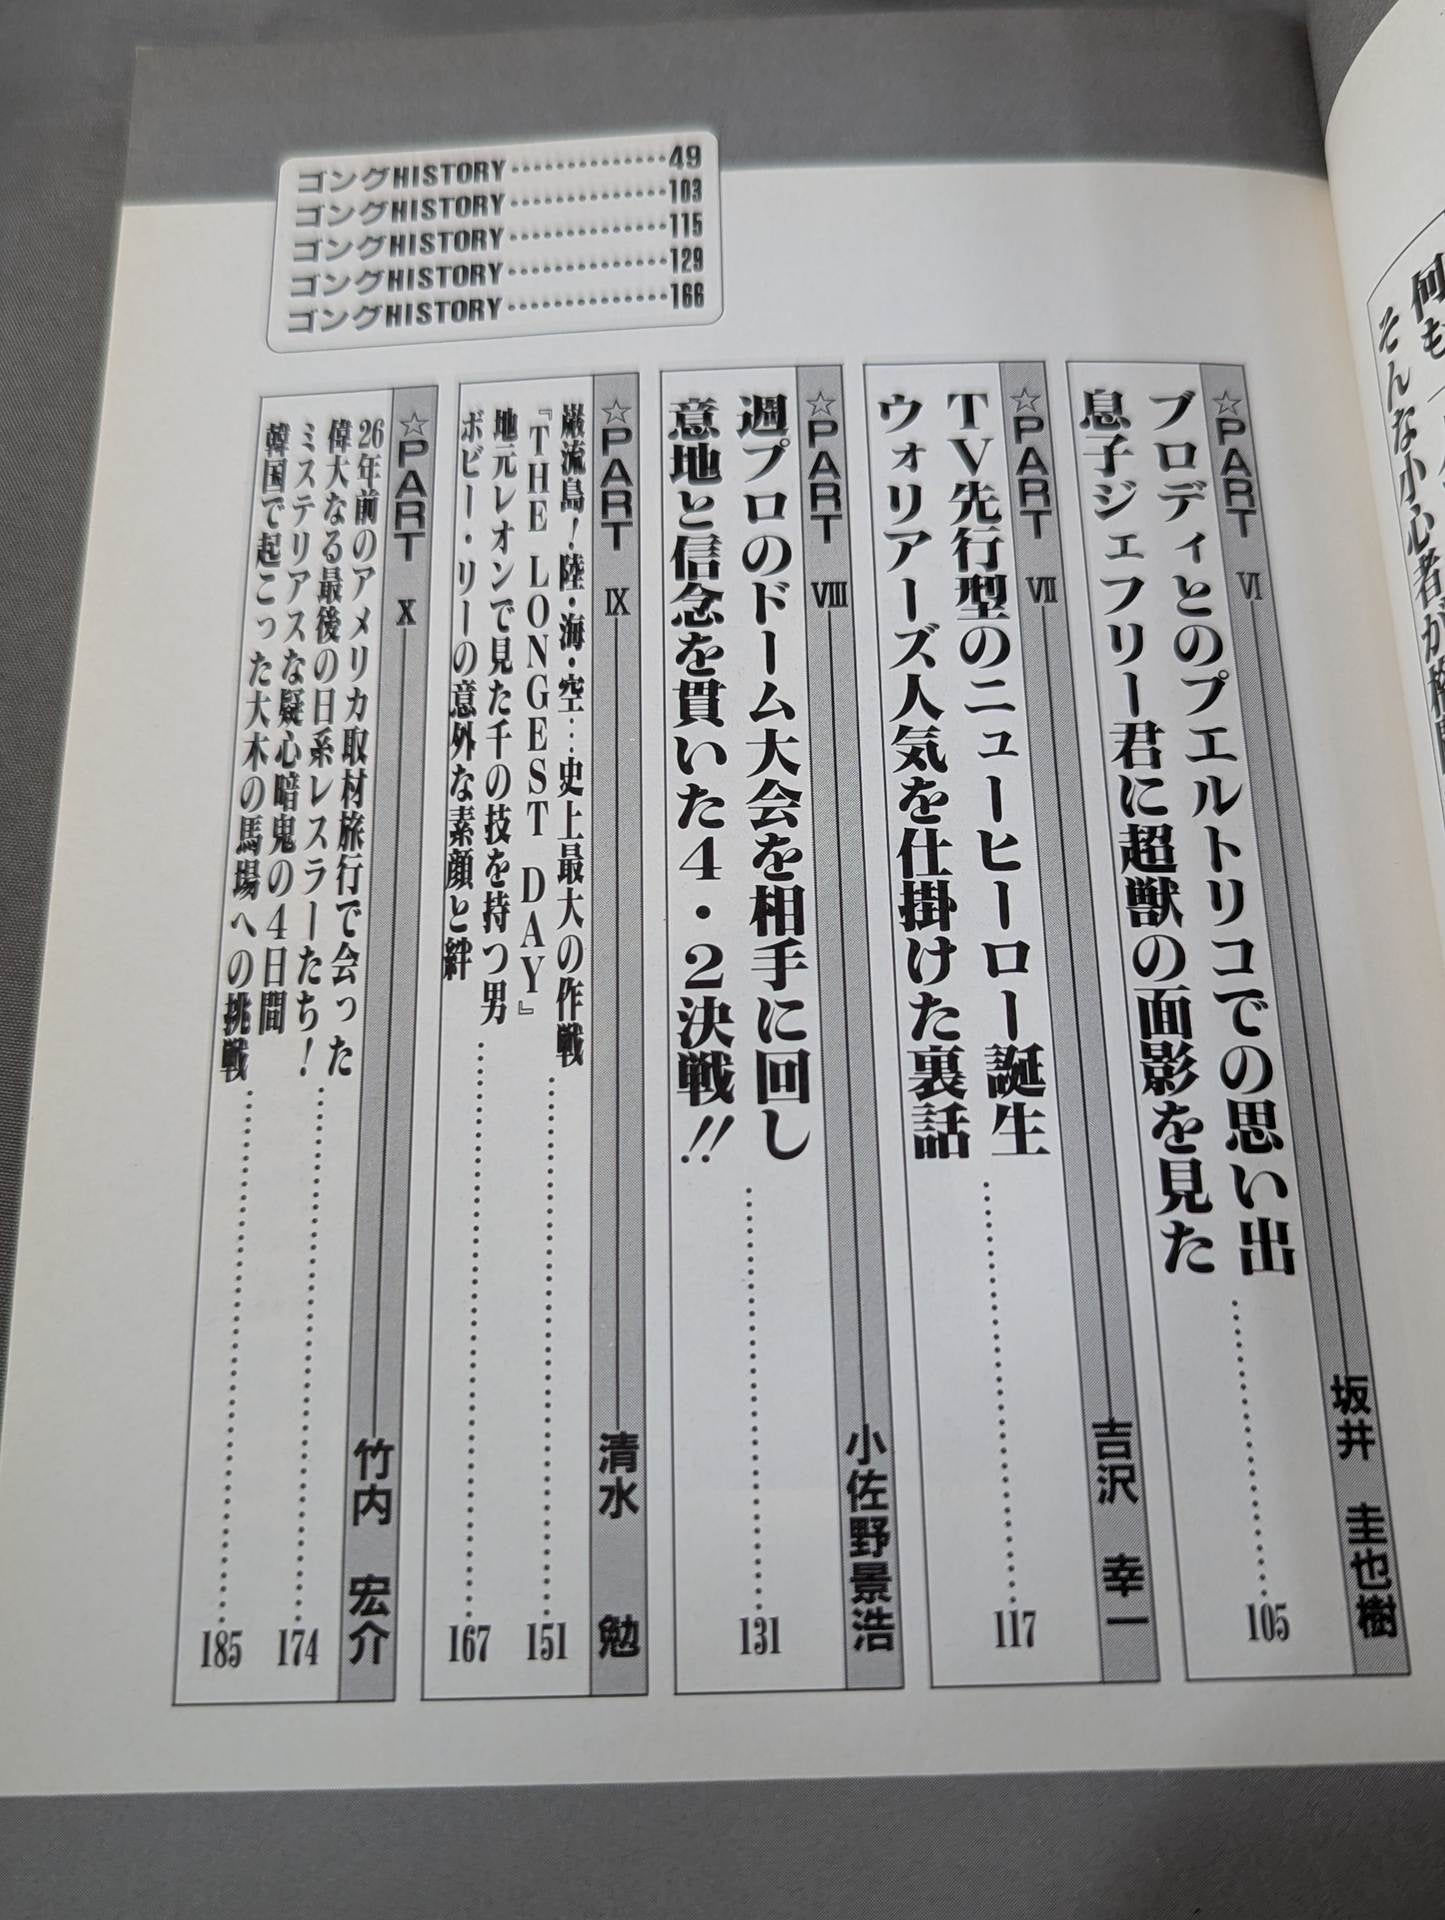 ゴングHISTORY……………49
ゴングHISTORY……………103
ゴングHISTORY……………115
ゴングHISTORY……………129
ゴングHISTORY……………166
そんな小心者が
☆PART Ⅵ 坂井 圭也樹
ブロディとのプエルトリコでの思い出
息子ジェフリー君に超獣の面影を見た……………105
☆PART Ⅶ 吉沢 幸一
TV先行型のニューヒーロー誕生
ウォリアーズ人気を仕掛けた裏話……………117
☆PART Ⅷ 小佐野景浩
週プロのドーム大会を相手に回し
意地と信念を貫いた4・2決戦!!……………131
☆PART Ⅸ 清水 勉
巌流島!陸・海・空…史上最大の作戦
『THE LONGEST DAY』……………151
地元レオンで見た千の技を持つ男
ボビー・リーの意外な素顔と絆……………167
☆PART Ⅹ 竹内 宏介
26年前のアメリカ取材旅行で会った
偉大なる最後の日系レスラーたち!……………174
ミステリアスな疑心暗鬼の4日間
韓国で起こった大木の馬場への挑戦……………185